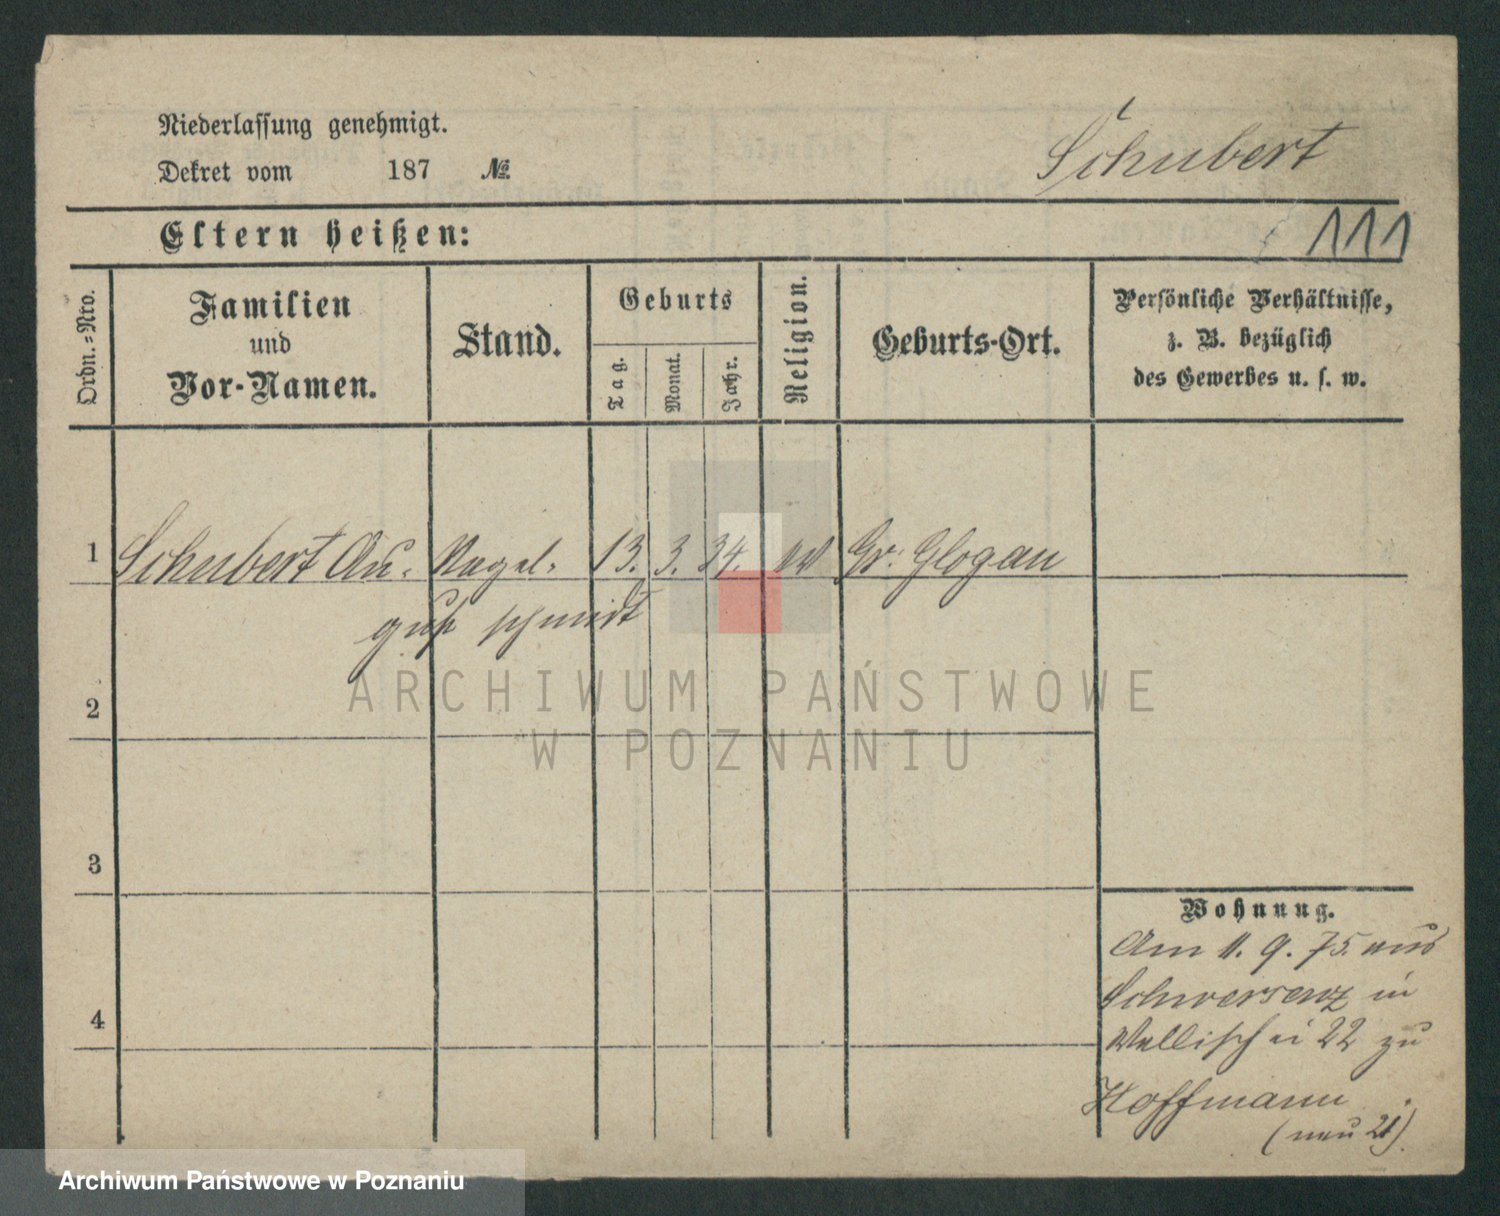 Niederlassung genehmigt.
Dekret vom 187 №
Schubert
Eltern heißen:
111
Ordn.-Nro.
Familien
und
Vor-Namen.
Stand.
Geburts
Tag.
Monat.
Jahr.
Religion.
Geburts-Ort.
Persönliche Verhältnisse,
z. B. bezüglich
des Gewerbes u. s. w.
1 Schubert Au- Nagel- 13. 3. 34. Gr. Glogau
gust schmidt
2
3
4
Wohnung.
Am 11. 9. 75. aus
Schwersenz in
Wallischei 22 zu
Hoffmann
(neu 21).
ARCHIWUM PAŃSTWOWE
W POZNANIU
Archiwum Państwowe w Poznaniu